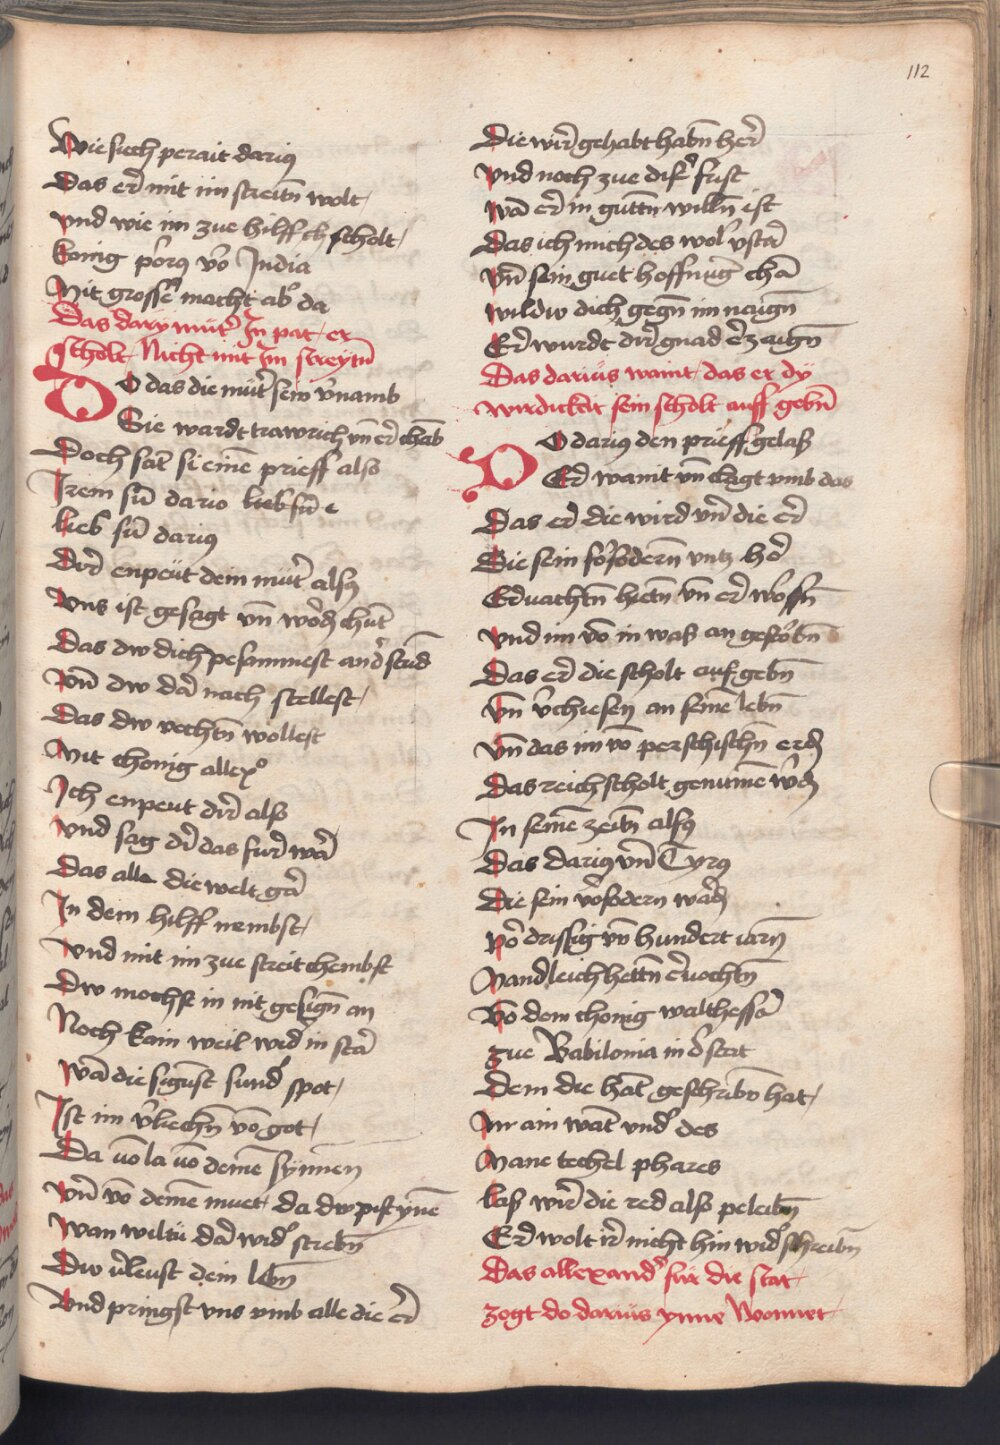 112
Wie sich perait darius
Das er mit im streitn wolt
vnd wie im zue hilff ch scholt
konig porus vo India
Mit grosser macht ab da
Das dary muter In pat er
scholt Nicht mit Im streytn
DO das die mutr sein vnamb
Sie wardt trawrich vn er chab
Doch sat si eine prieff also
Irem sun dario lieb sun e
lieb sun darius
Dir enpeut dein mutr alsus
Vns ist gesagt vn worden chut
Das dw dich pesamnest ander stund
Von dw dar nach stellest
Das dw vechtn wollest
Mit chonig allexo
Ich enpeut dir also
vnd sag dir das fur war
Das alle die welt gar
In dein hilff nembst
vnd mit im zue streit chembst
Dw mochst in nit gesign an
Noch kain weil wider in stan
Wan die sigust sunder spot
Ist im vlichn vo got
Da vo la vo deine synnen
Vn vo deine muet da dw pist ynne
Wan wiltu dar wider strebn
Dw vleust dein lebn
Vnd pringst vns vmb alle die er
Die wir gehabt habn her
vnd noch zue diser frist
Wan er in guttn willn ist
Das ich mich des wol vstan
Vn sein guet hoffnug chan
wildw dich gegn im naygn
Er wurdt dir gnad erzaign
Das darius wamt das er dy
wirdickeit sein scholt auff gebn
DO darius den prieff gelas
Er wamt vn clagt vmb das
Das er die wird vn die er
Die sein fosodern vntz her
Ervachtn hietn vn erworffn
vnd im vo in was an gestorbn
Das er die scholt auf gebn
Vn vchiesen an seine lebn
Vn das im vo perschischn erd
Das reich scholt genume werd
In seine zeitn alsus
Das darius vn Cyrus
Die sein vosodern warn
Vor drissig vn hundert iarn
Mandleich hettn ervochtn
Vo dem chonig walthessar
zue Babilonia in der stat
Dem die hat geschribn hat
Nr ain wat vnder des
Mane techel phares
las wir die red also peleibn
Er wolt ir nicht hin wider schreibn
Das allexander fur die stat
zogt do darius ynne Wonnet